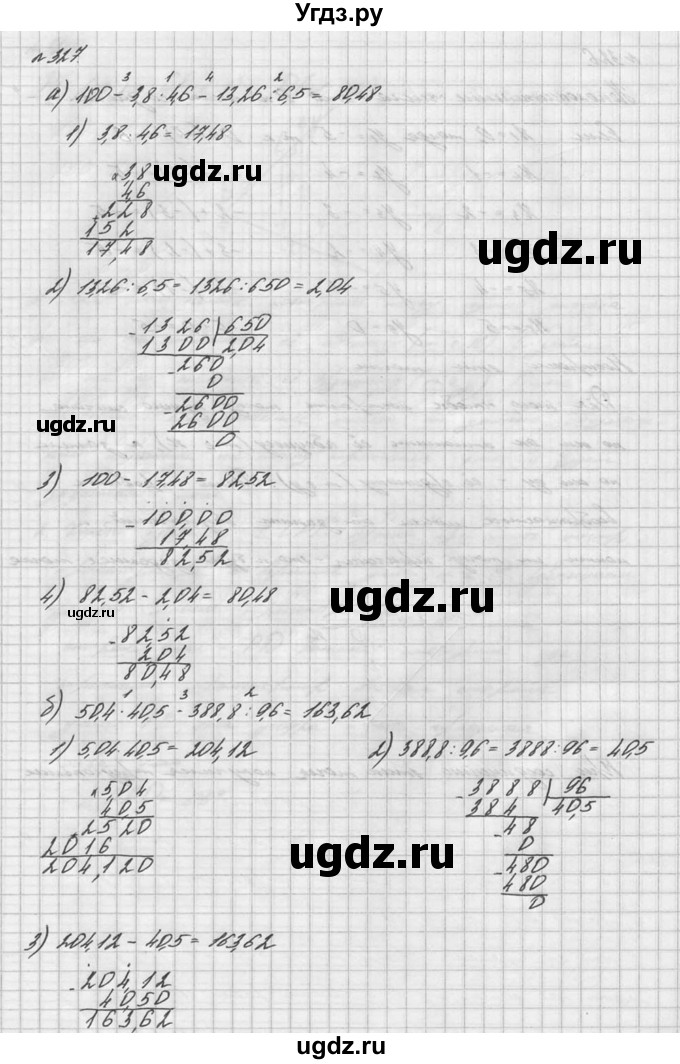 Угдз.ру
№327
3 1 4 2
а) 100 - 3,8 : 4,6 - 13,26 : 6,5 = 80,48
1) 3,8 · 4,6 = 17,48
ugdz.ru
× 3,8
4,6
ugdz.ru
2 2 8
1 5 2
1 7,4 8
2) 13,26 : 6,5 = 1326 : 650 = 2,04
- 1 3 2 6 | 650
1 3 0 0 | 2,04
- 2 6 0
0
- 2 6 0 0
2 6 0 0
0
ugdz.ru
3) 100 - 17,48 = 82,52
- 1 0 0,0 0
1 7,4 8
8 2,5 2
ugdz.ru
4) 82,52 - 2,04 = 80,48
ugdz.ru
- 8 2,5 2
2 0 4
8 0,4 8
1 3 2
б) 50,4 · 40,5 - 388,8 : 9,6 = 163,62
1) 50,4 40,5 = 204,12 2) 388,8 : 9,6 = 3888 : 96 = 40,5
× 5 0 4
4 0 5
2 5 2 0
2 0 1 6
2 0 4,1 2 0
- 3 8 8 8 | 96
3 8 4 | 40,5
- 4 8
0
- 4 8 0
4 8 0
0
ugdz.ru
3) 204,12 - 40,5 = 163,62
- 2 0 4,1 2
4 0,5 0
1 6 3,6 2
ugdz.ru
ugdz.ru